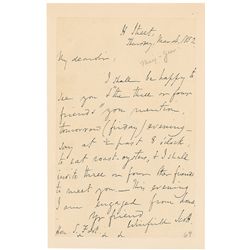 H Street,
Thursday, March, 1852
My dear sir,
I shall be happy to
see you & the three or four
friends you mention,
tomorrow (friday) evening –
say at ½ past 8 o'clock,
to eat roast oysters, & I shall
invite three or four other friends
to meet you – This evening
I am engaged from home
Yr friend
Winfield Scott
Hon
69